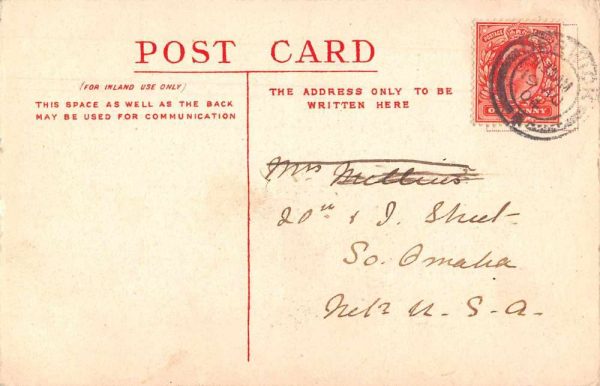 POST CARD
(FOR INLAND USE ONLY)
THIS SPACE AS WELL AS THE BACK
MAY BE USED FOR COMMUNICATION
THE ADDRESS ONLY TO BE
WRITTEN HERE
POSTAGE
ONE PENNY
Mrs
20th & J. Street
So. Omaha
U. S. A.